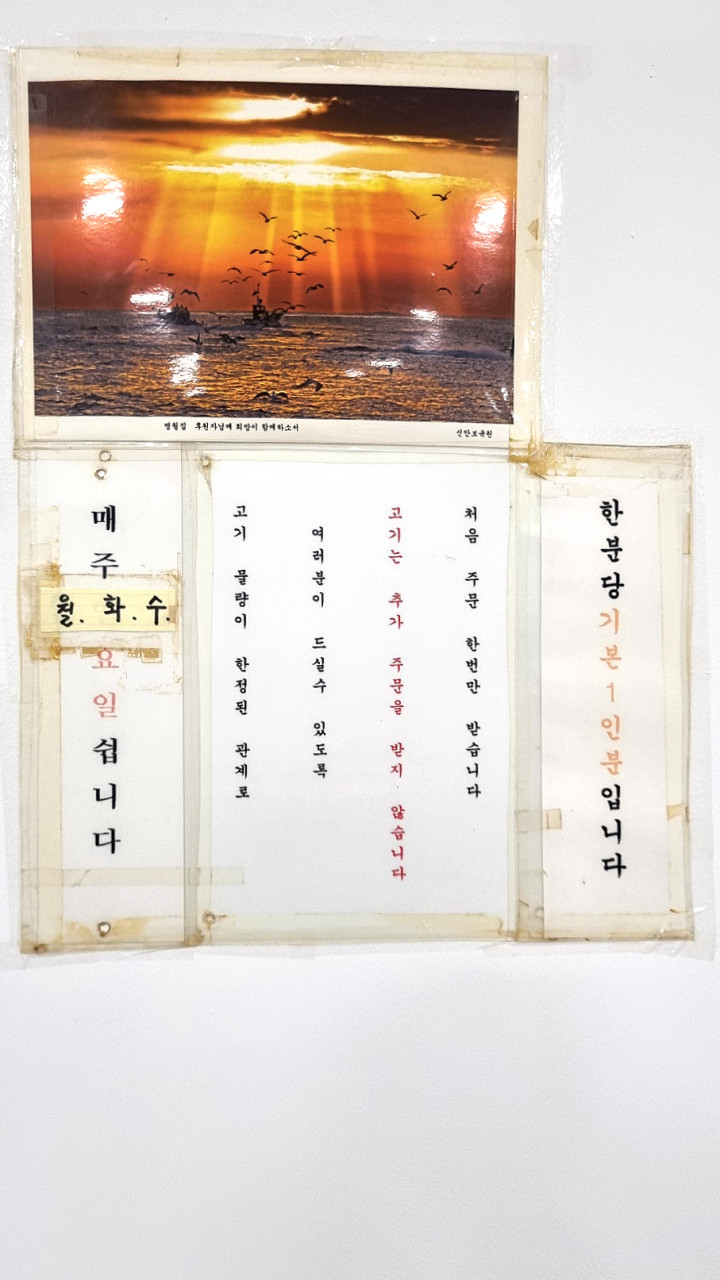 명월집 후원자님께 희망이 함께하소서
매주
월. 화. 수.
요일 쉽니다
고기 물량이 한정된 관계로
여러분이 드실수 있도록
고기는 추가 주문을 받지 않습니다
처음 주문 한번만 받습니다
한분당기본1인분입니다